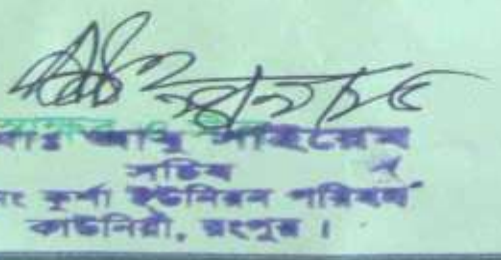 মোঃ আবু সাইয়েম
সচিব
নং কুর্শা ইউনিয়ন পরিষদ
কাউনিয়া, রংপুর ।